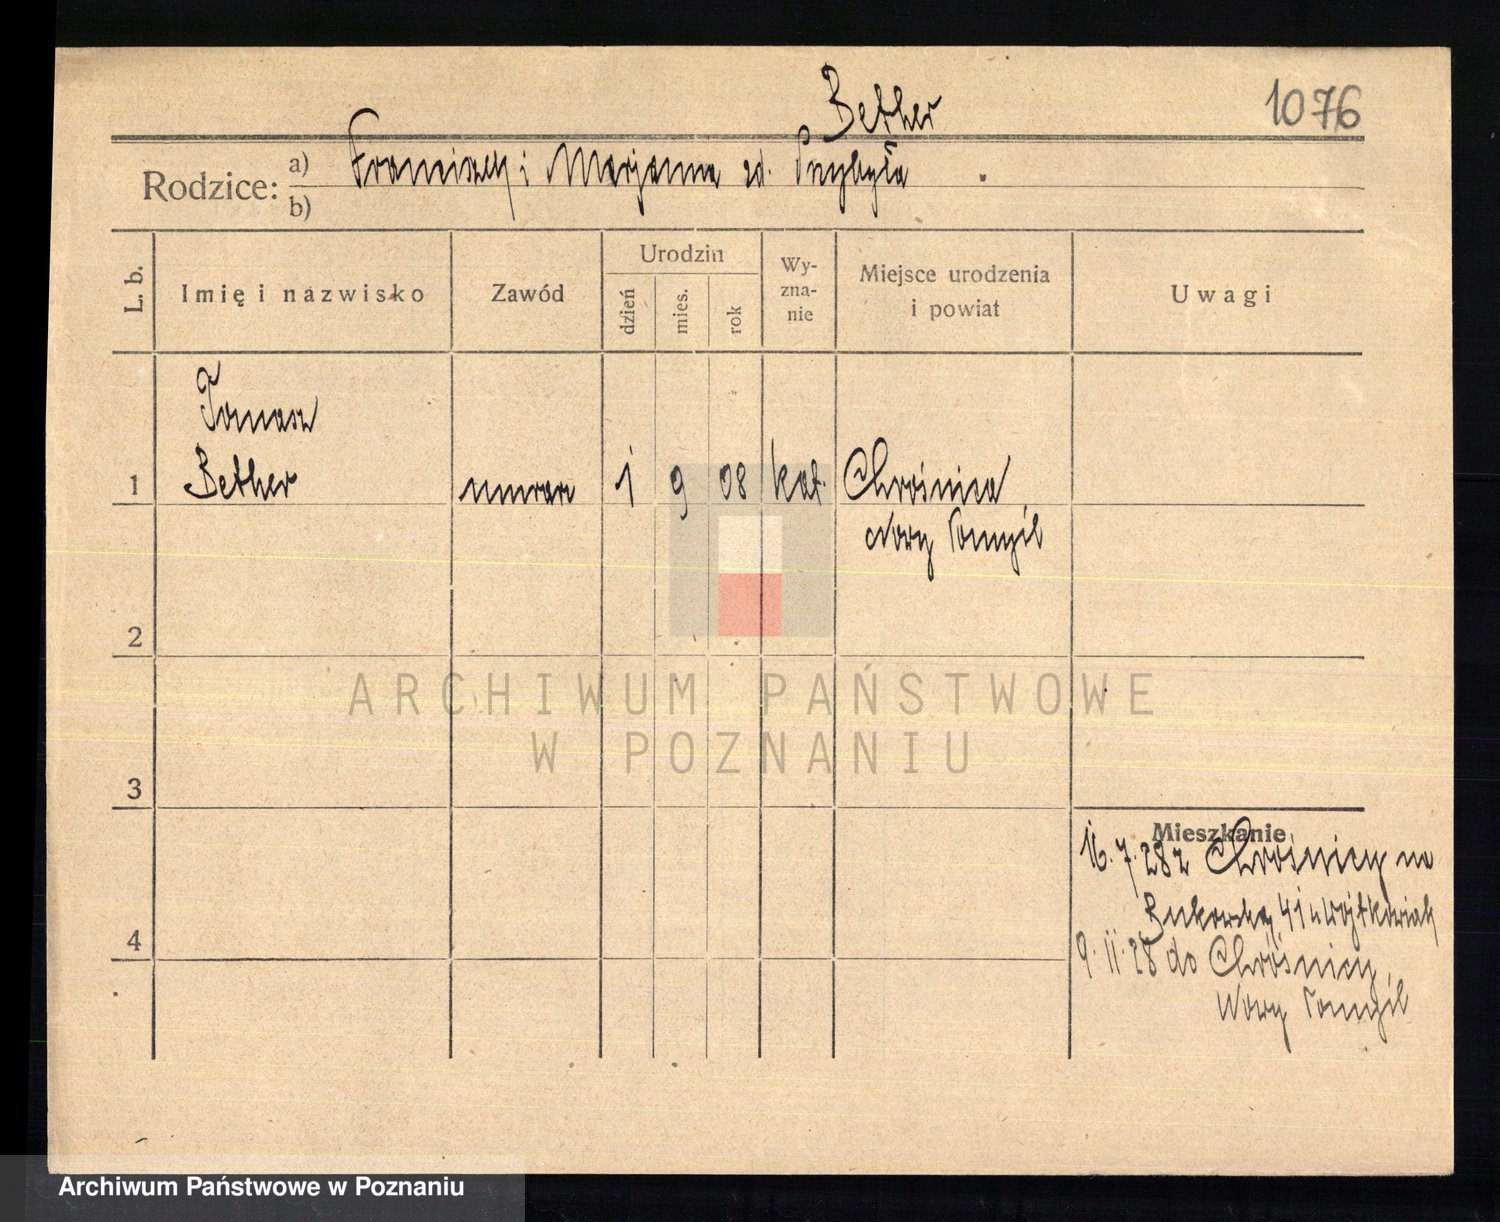 Bether
1076
Rodzice: a) Franciszek i Marjanna zd. Przybyła
b)
L. b.
Imię i nazwisko
Zawód
Urodzin
dzień
mies.
rok
Wy-
zna-
nie
Miejsce urodzenia
i powiat
Uwagi
Tomasz
1 Bether murarz 1 9 08 kat. Chrośnica
Nowy Tomyśl
2
ARCHIWUM PAŃSTWOWE
W POZNANIU
3
Mieszkanie
16.7.28 z Chrośnicy na
Bukowską 41 u Wojtkowiak
4
9.11.28 do Chrośnicy,
Nowy Tomyśl
Archiwum Państwowe w Poznaniu